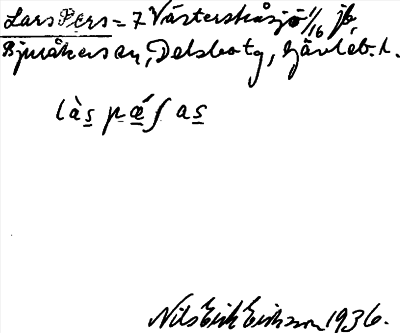 Lars Pers = 7 Västerskåsjö 1/16 jb,
Bjuråkers sn, Delsbo tg, Gävleb. l.
làs pǽʃ as
Nils Erik Eriksson 1936.